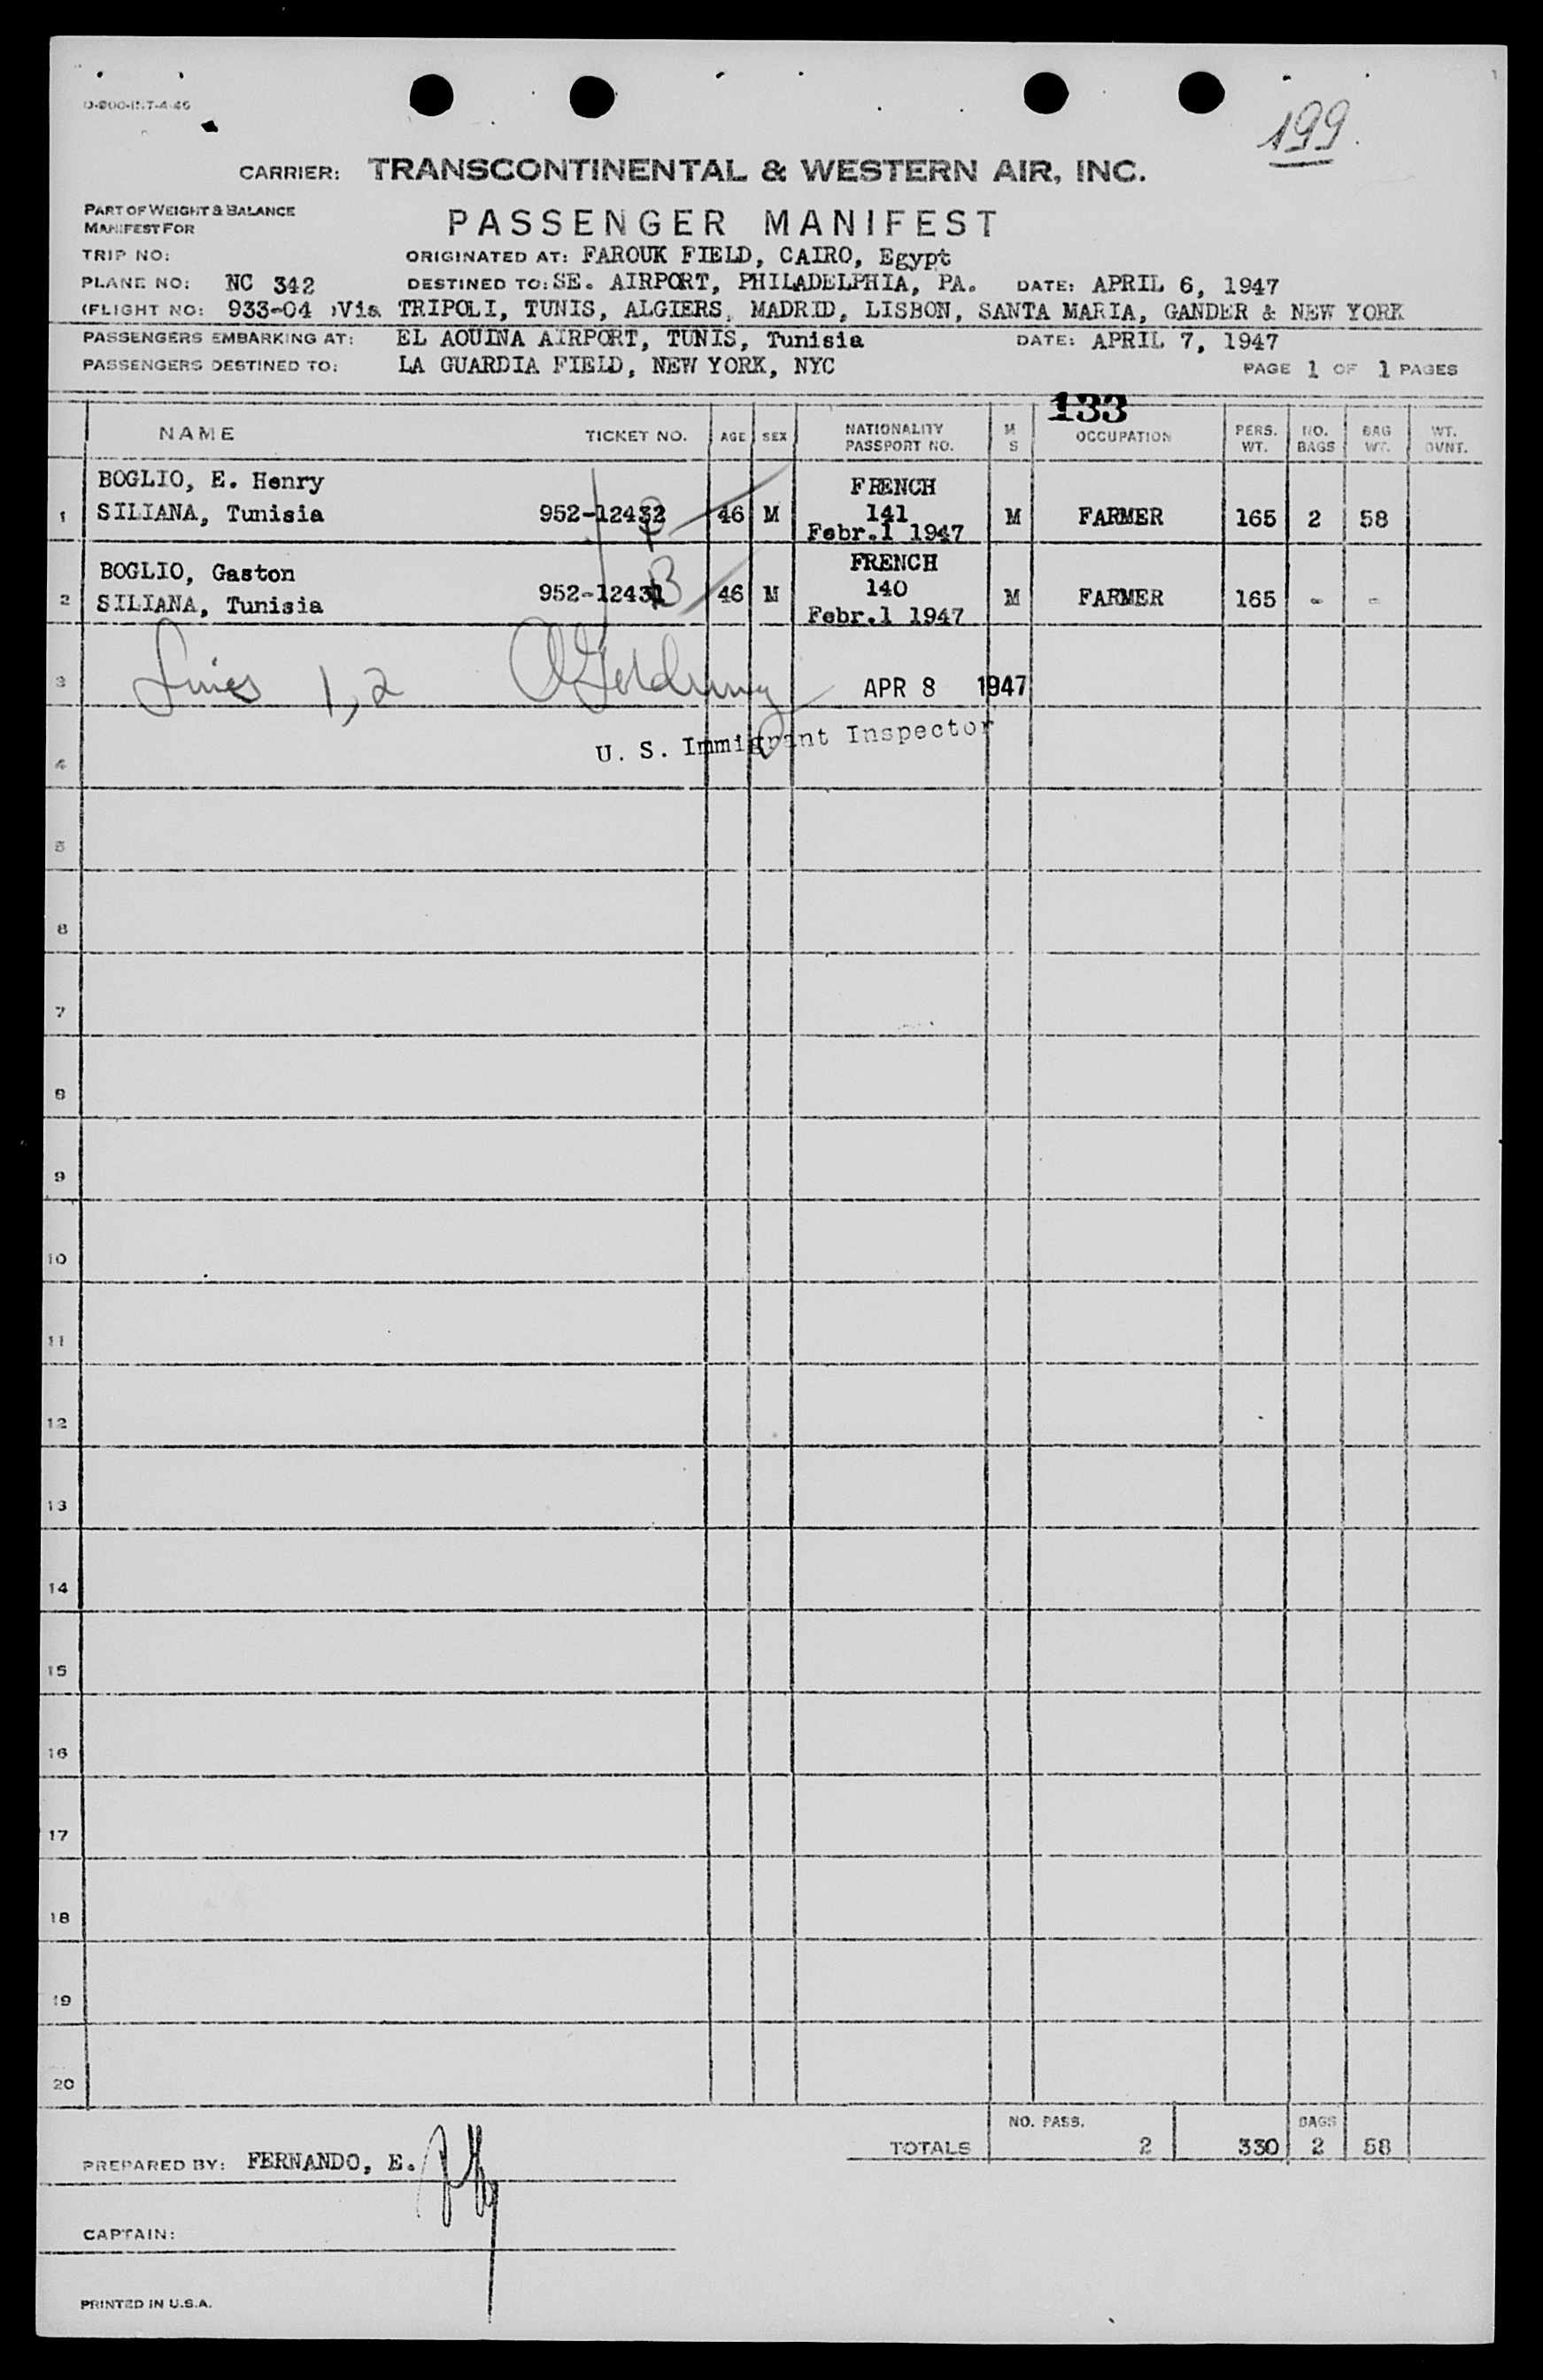 199.
CARRIER: TRANSCONTINENTAL & WESTERN AIR, INC.
PART OF WEIGHT & BALANCE
MANIFEST FOR
PASSENGER MANIFEST
TRIP NO: ORIGINATED AT: FAROUK FIELD, CAIRO, Egypt
PLANE NO: NC 342 DESTINED TO: SE. AIRPORT, PHILADELPHIA, PA. DATE: APRIL 6, 1947
(FLIGHT NO: 933-04 )Via TRIPOLI, TUNIS, ALGIERS, MADRID, LISBON, SANTA MARIA, GANDER & NEW YORK
PASSENGERS EMBARKING AT: EL AOUINA AIRPORT, TUNIS, Tunisia DATE: APRIL 7, 1947
PASSENGERS DESTINED TO: LA GUARDIA FIELD, NEW YORK, NYC PAGE 1 OF 1 PAGES
133
NAME TICKET NO. AGE SEX NATIONALITY PASSPORT NO. M S OCCUPATION PERS. WT. NO. BAGS BAG WT. WT. OVNT.
BOGLIO, E. Henry FRENCH
1 SILIANA, Tunisia 952-12432 46 M 141 M FARMER 165 2 58
Febr.1 1947
BOGLIO, Gaston FRENCH
2 SILIANA, Tunisia 952-12431 B 46 M 140 M FARMER 165 - -
Febr.1 1947
3 Lines 1,2 APR 8 1947
U. S. Immigrant Inspector
4
5
6
7
8
9
10
11
12
13
14
15
16
17
18
19
20
NO. PASS. BAGS
TOTALS 2 330 2 58
PREPARED BY: FERNANDO, E.
CAPTAIN:
PRINTED IN U.S.A.